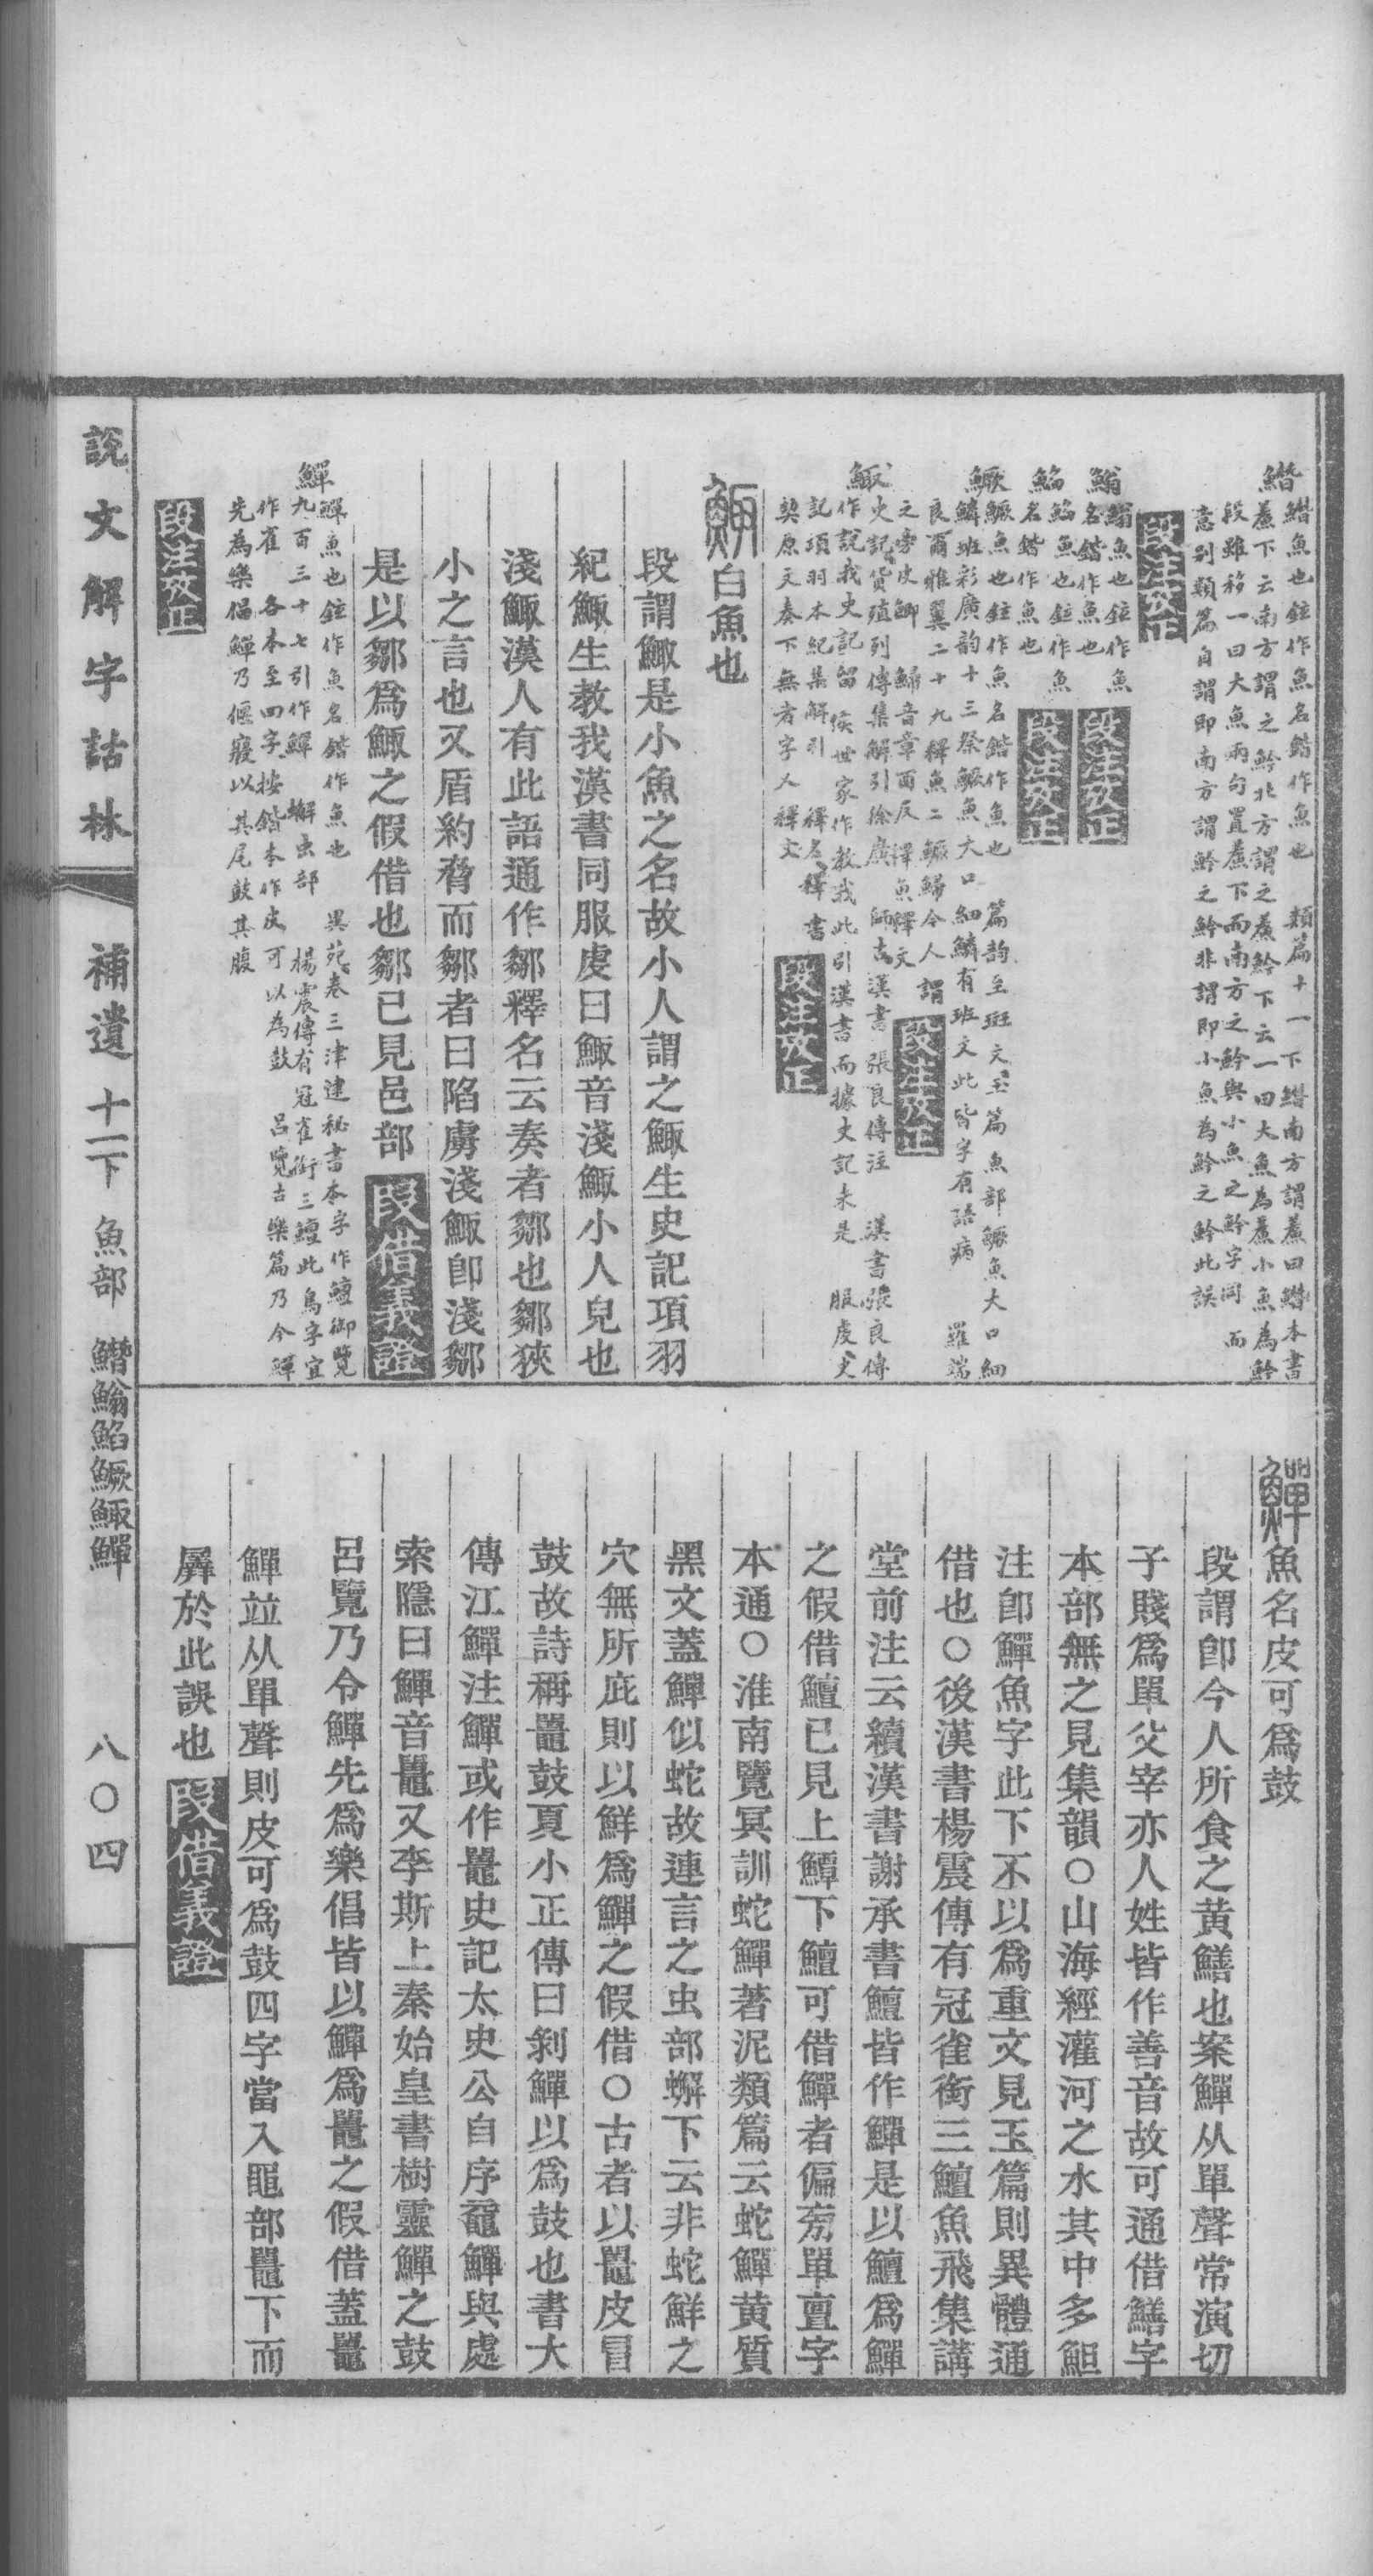 鱃魚也鉉作魚名鍇作魚也　類篇十一下鱃南方謂䰼曰鱃本書
䰼下云南方謂之魿北方謂之䰼魿下云一曰大魚為䰼小魚為魿
段雖移一曰大魚兩句置䰼下而南方之魿與小魚之魿字同　而
意别類篇自謂即南方謂魿之魿非謂即小魚為魿之魿此誤
段注攷正
鰯魚也鉉作魚
名鍇作魚也
段注攷正
鮥
名鍇作魚也
段注攷正
鱖鱖魚也鉉作魚名鍇作魚也　篇韵至斑文玉篇魚部鱖魚大口細
鱗班彩廣韵十三祭鱖魚大口細鱗有班文此皆字有語病　羅端
良爾雅翼二十九釋魚二鱖鯞今人謂
之㫄皮鯽　鯞音章酉反　釋魚釋文
段注攷正
鯫　史記貨殖列傳集解引徐廣　師古漢書張良傳注　漢書張良傳
作說我史記留侯世家作教我此引漢書而據史記未是　服虔史
記項羽本紀集解引　釋名釋書
契原文奏下無者字人釋文
段注攷正
鯫白魚也
段謂鯫是小魚之名故小人謂之鯫生史記項羽
紀鯫生教我漢書同服虔曰鯫音淺鯫小人皃也
淺鯫漢人有此語通作鄒釋名云奏者鄒也鄒狹
小之言也又盾約脅而鄒者曰陷虜淺鯫卽淺鄒
是以鄒爲鯫之假借也鄒已見邑部
段借義證
鱓鱓魚也鉉作魚名鍇作魚也　異苑卷三津逮秘書本字作鱣御覽
九百三十七引作鱓　䲒虫部　楊震傳有冠雀銜三鱣此鳥字宜
作雀　各本至四字按鍇本作皮可以為鼓　呂覽古樂篇乃令鱓
先為樂倡鱓乃偃寢以其尾鼓其腹
段注攷正
鱓魚名皮可爲鼓
段謂卽今人所食之黃鱔也案鱓从單聲常演切
子賤爲單父宰亦人姓皆作善音故可通借鱔字
本部無之見集韻○山海經灌河之水其中多䱇
注卽鱓魚字此下不以爲重文見玉篇則異體通
借也○後漢書楊震傳有冠雀銜三鱣魚飛集講
堂前注云續漢書謝承書鱣皆作鱓是以鱣爲鱓
之假借鱣已見上鱏下鱣可借鱓者偏㫄單亶字
本通○淮南覽冥訓蛇鱓著泥類篇云蛇鱓黃質
黑文蓋鱓似蛇故連言之虫部蠏下云非蛇鮮之
穴無所庇則以鮮爲鱓之假借○古者以鼉皮冒
鼓故詩稱鼉鼓夏小正傳曰剝鱓以爲鼓也書大
傳江鱓注鱓或作鼉史記太史公自序黿鱓與處
索隱曰鱓音鼉又李斯上秦始皇書樹靈鱓之鼓
呂覽乃令鱓先爲樂倡皆以鱓爲鼉之假借蓋鼉
鱓竝从單聲則皮可爲鼓四字當入黽部鼉下而
羼於此誤也
段借義證
說文解字詁林　補遺　十一下　魚部　鱃鰯鮥鱖鯫鱓　八〇四